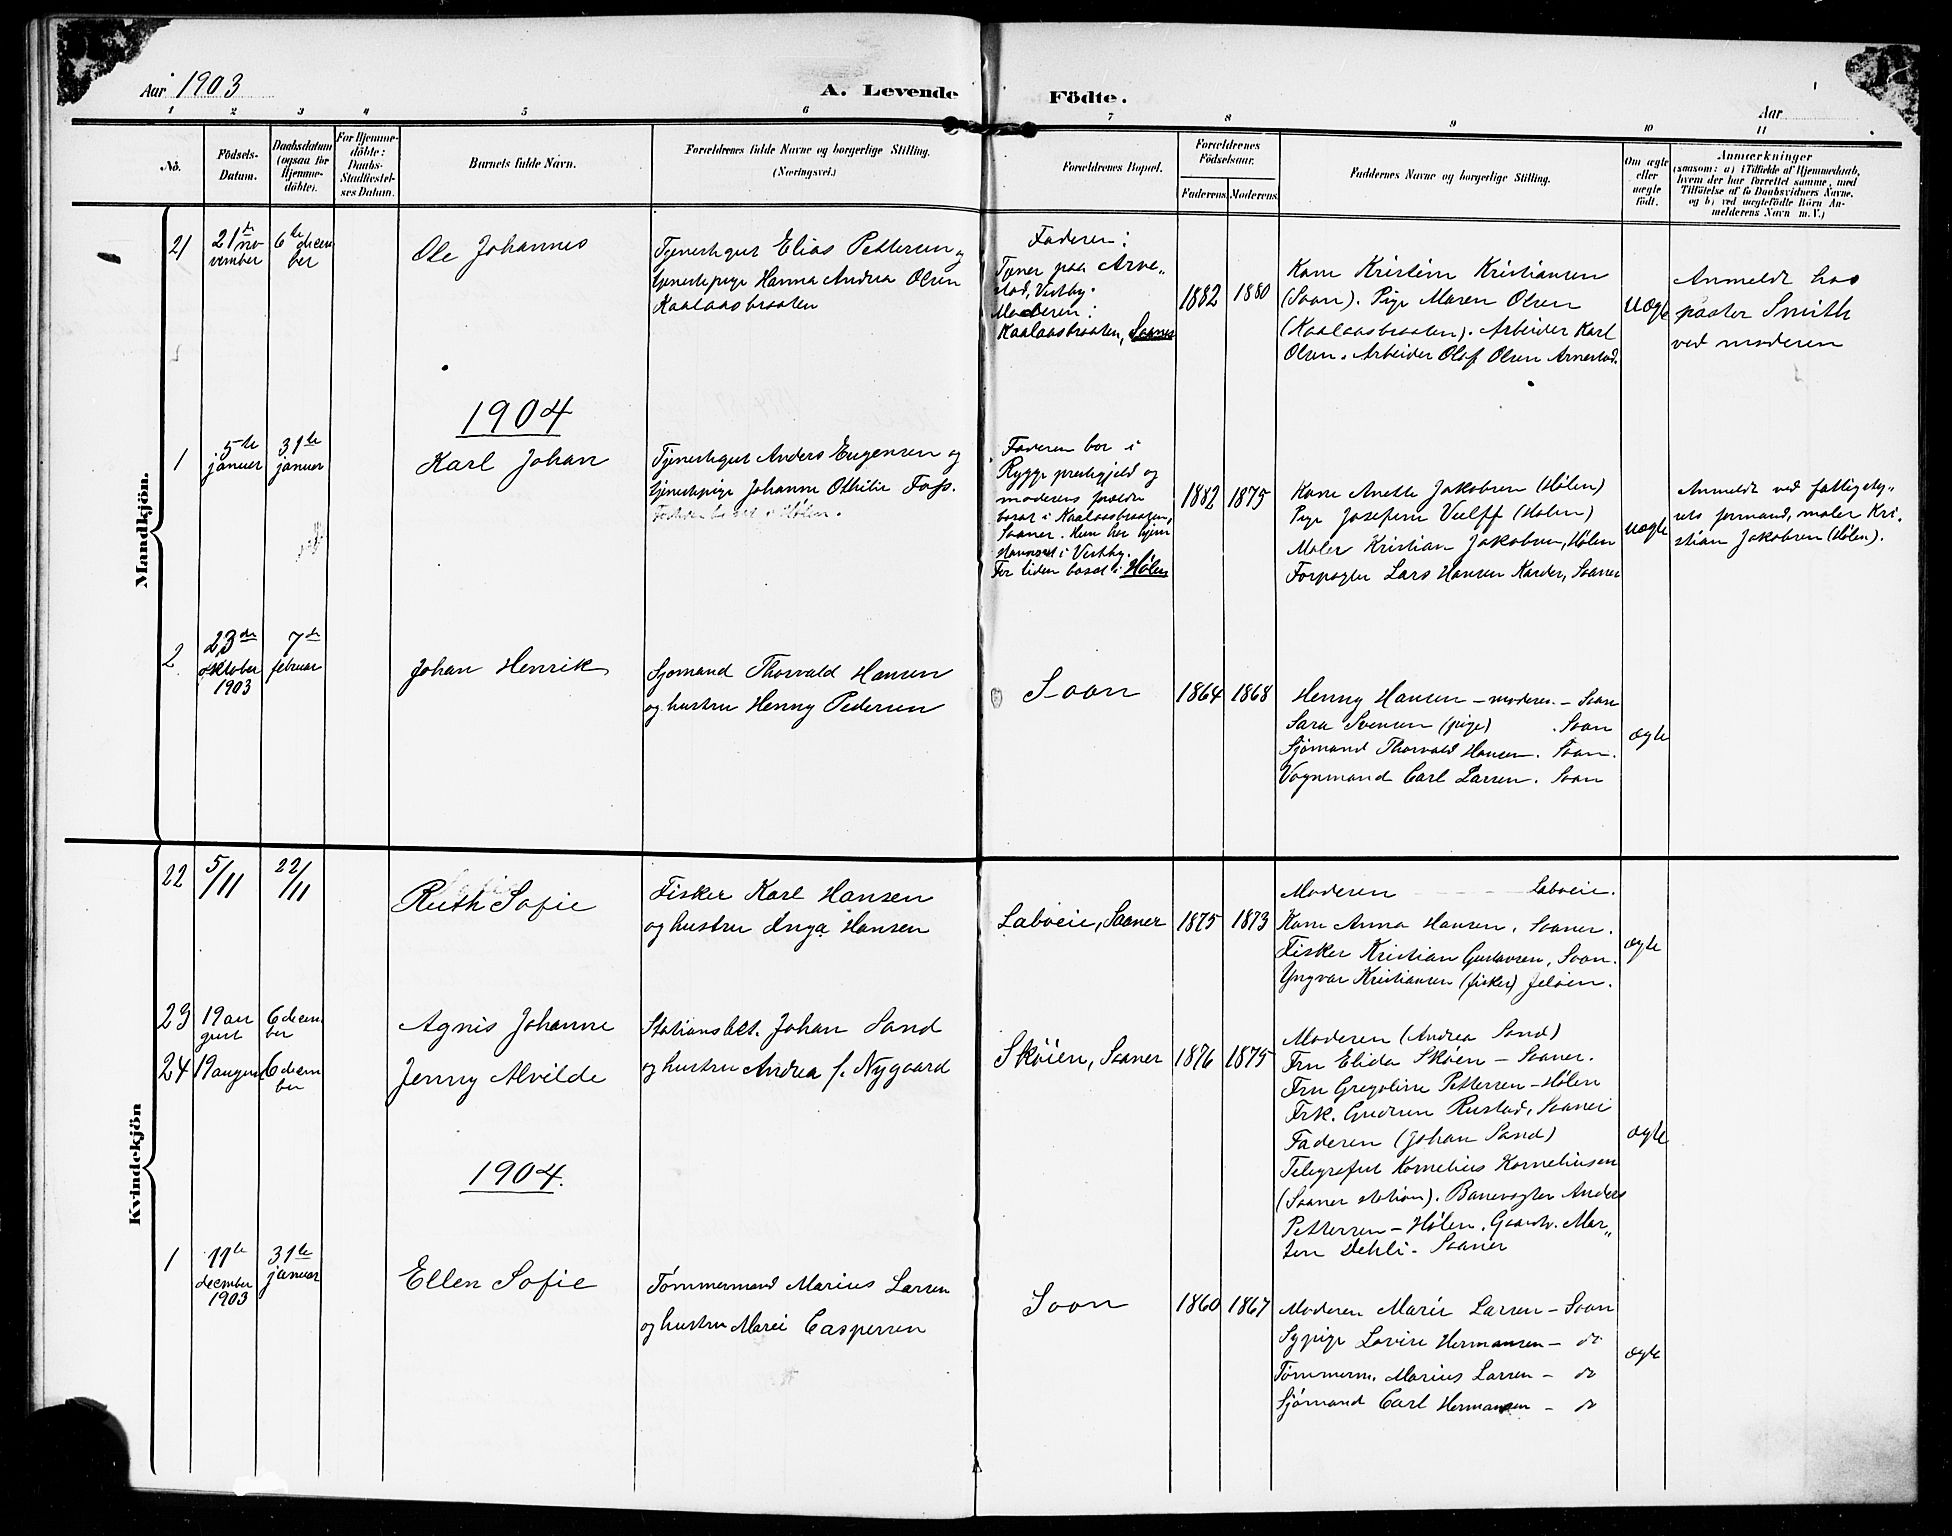 Aar 1903
A. Levende Födte.
Aar
1 2 3 4 5 6 7 8 9 10 11
No.
Födsels-
Datum.
Daabsdatum
(ogsaa for
Hjemme-
döbte).
For Hjemme-
döbte:
Daabs-
Stadfæstel-
ses Datum.
Barnets fulde Navn.
Forældrenes fulde Navne og borgerlige Stilling.
(Næringsvei.)
Forældrenes Bopæl.
Forældrenes
Födselsaar.
Faderens Moderens
Faddernes Navne og borgerlige Stilling.
Om ægte
eller
uægte
födt.
Anmærkninger
(saasom: a) i Tilfælde af Hjemmedaab,
hvem der har forrettet samme, med
Tilföielse af to Daabsvidners Navne.
og b) ved uægtefödte Börn An-
melderens Navn m. V.)
Mandkjön.
21
21de no-
vember
6te decem
ber
Ole Johannes
Tjenestegut Elias Pettersen og
tjenestepige Hanna Andrea Olsen
Kaalaasbraaten
Faderen:
Tjener paa Arne-
stad, Vestby.
Moderen:
Kaalaasbraaten, Saaner
1882 1880
Kone Kristine Kristiansen
(Soon). Pige Maren Olsen
(Kaalaasbraaten). Arbeider Karl
Olsen. Arbeider Olof Olsen Arnestad.
uægte
Anmeldt hos
pastor Smith
ved moderen
1904
1
5te
januar
31te
januar
Karl Johan
Tjenestegut Anders Eugensen og
tjenestepige Johanne Othilie Foss.
Faderen bor i
Rygge prestegjeld og
moderens forældre
bosat i Kaalaasbraaten,
Saaner. Hun har hjem
stavnsret i Vestby.
For tiden bosat i Hølen
1882 1875
Kone Anette Jakobsen (Hølen)
Pige Josefine Vulff (Hølen)
Maler Kristian Jakobsen, Hølen
Forpagter Lars Hansen Karder, Saaner
uægte
Anmeldt ved fattigsty-
rets formand, maler Kri-
stian Jakobsen (Hølen).
2
23de
oktober
1903
7de
februar
Johan Henrik
Sjømand Thorvald Hansen
og hustru Henny Pedersen
Soon
1864 1868
Henny Hansen – moderen – Soon
Sara Svensen (pige) . Soon
Sjømand Thorvald Hansen. Soon.
Vognmand Carl Larsen. Soon
ægte
Kvindekjön
22
5/11
22/11
Ruth Sofie
Fisker Karl Hansen
og hustru Inga Hansen
Laboeie, Saaner
1875 1873
Moderen Laboeie.
Kone Anna Hansen, Saaner.
Fisker Kristian Gustavsen, Soon.
Yngvar Kristiansen (fisker) Jeløen.
ægte
23
19 au
gust
6 decem
ber
Agnis Johanne
Stationsbet. Johan Sand
24
19 august
6 decem
ber
Jenny Alvilde
og hustru Andrea f. Nygaard
Skøien, Saaner
1876 1875
Moderen (Andrea Sand)
Fru Elida Skøen – Saaner.
Fru Gregoline Pettersen – Hølen
Frk. Gudrun Rustad, Saaner
Faderen (Johan Sand)
Telegrafist Kornelius Korneliussen
(Saaner station). Banevogter Anders
Pettersen – Hølen. Gaardbr. Mar-
ten Dehli – Saaner
ægte
1904.
1
11te
december
1903
31te
januar
Ellen Sofie
Tømmermand Marius Larsen
og hustru Marie Caspersen
Soon
1860 1867
Moderen Marie Larsen – Soon
Sypige Lovise Hermansen – do
Tømmerm. Marius Larsen – do
Sjømand Carl Hermansen – do
ægte